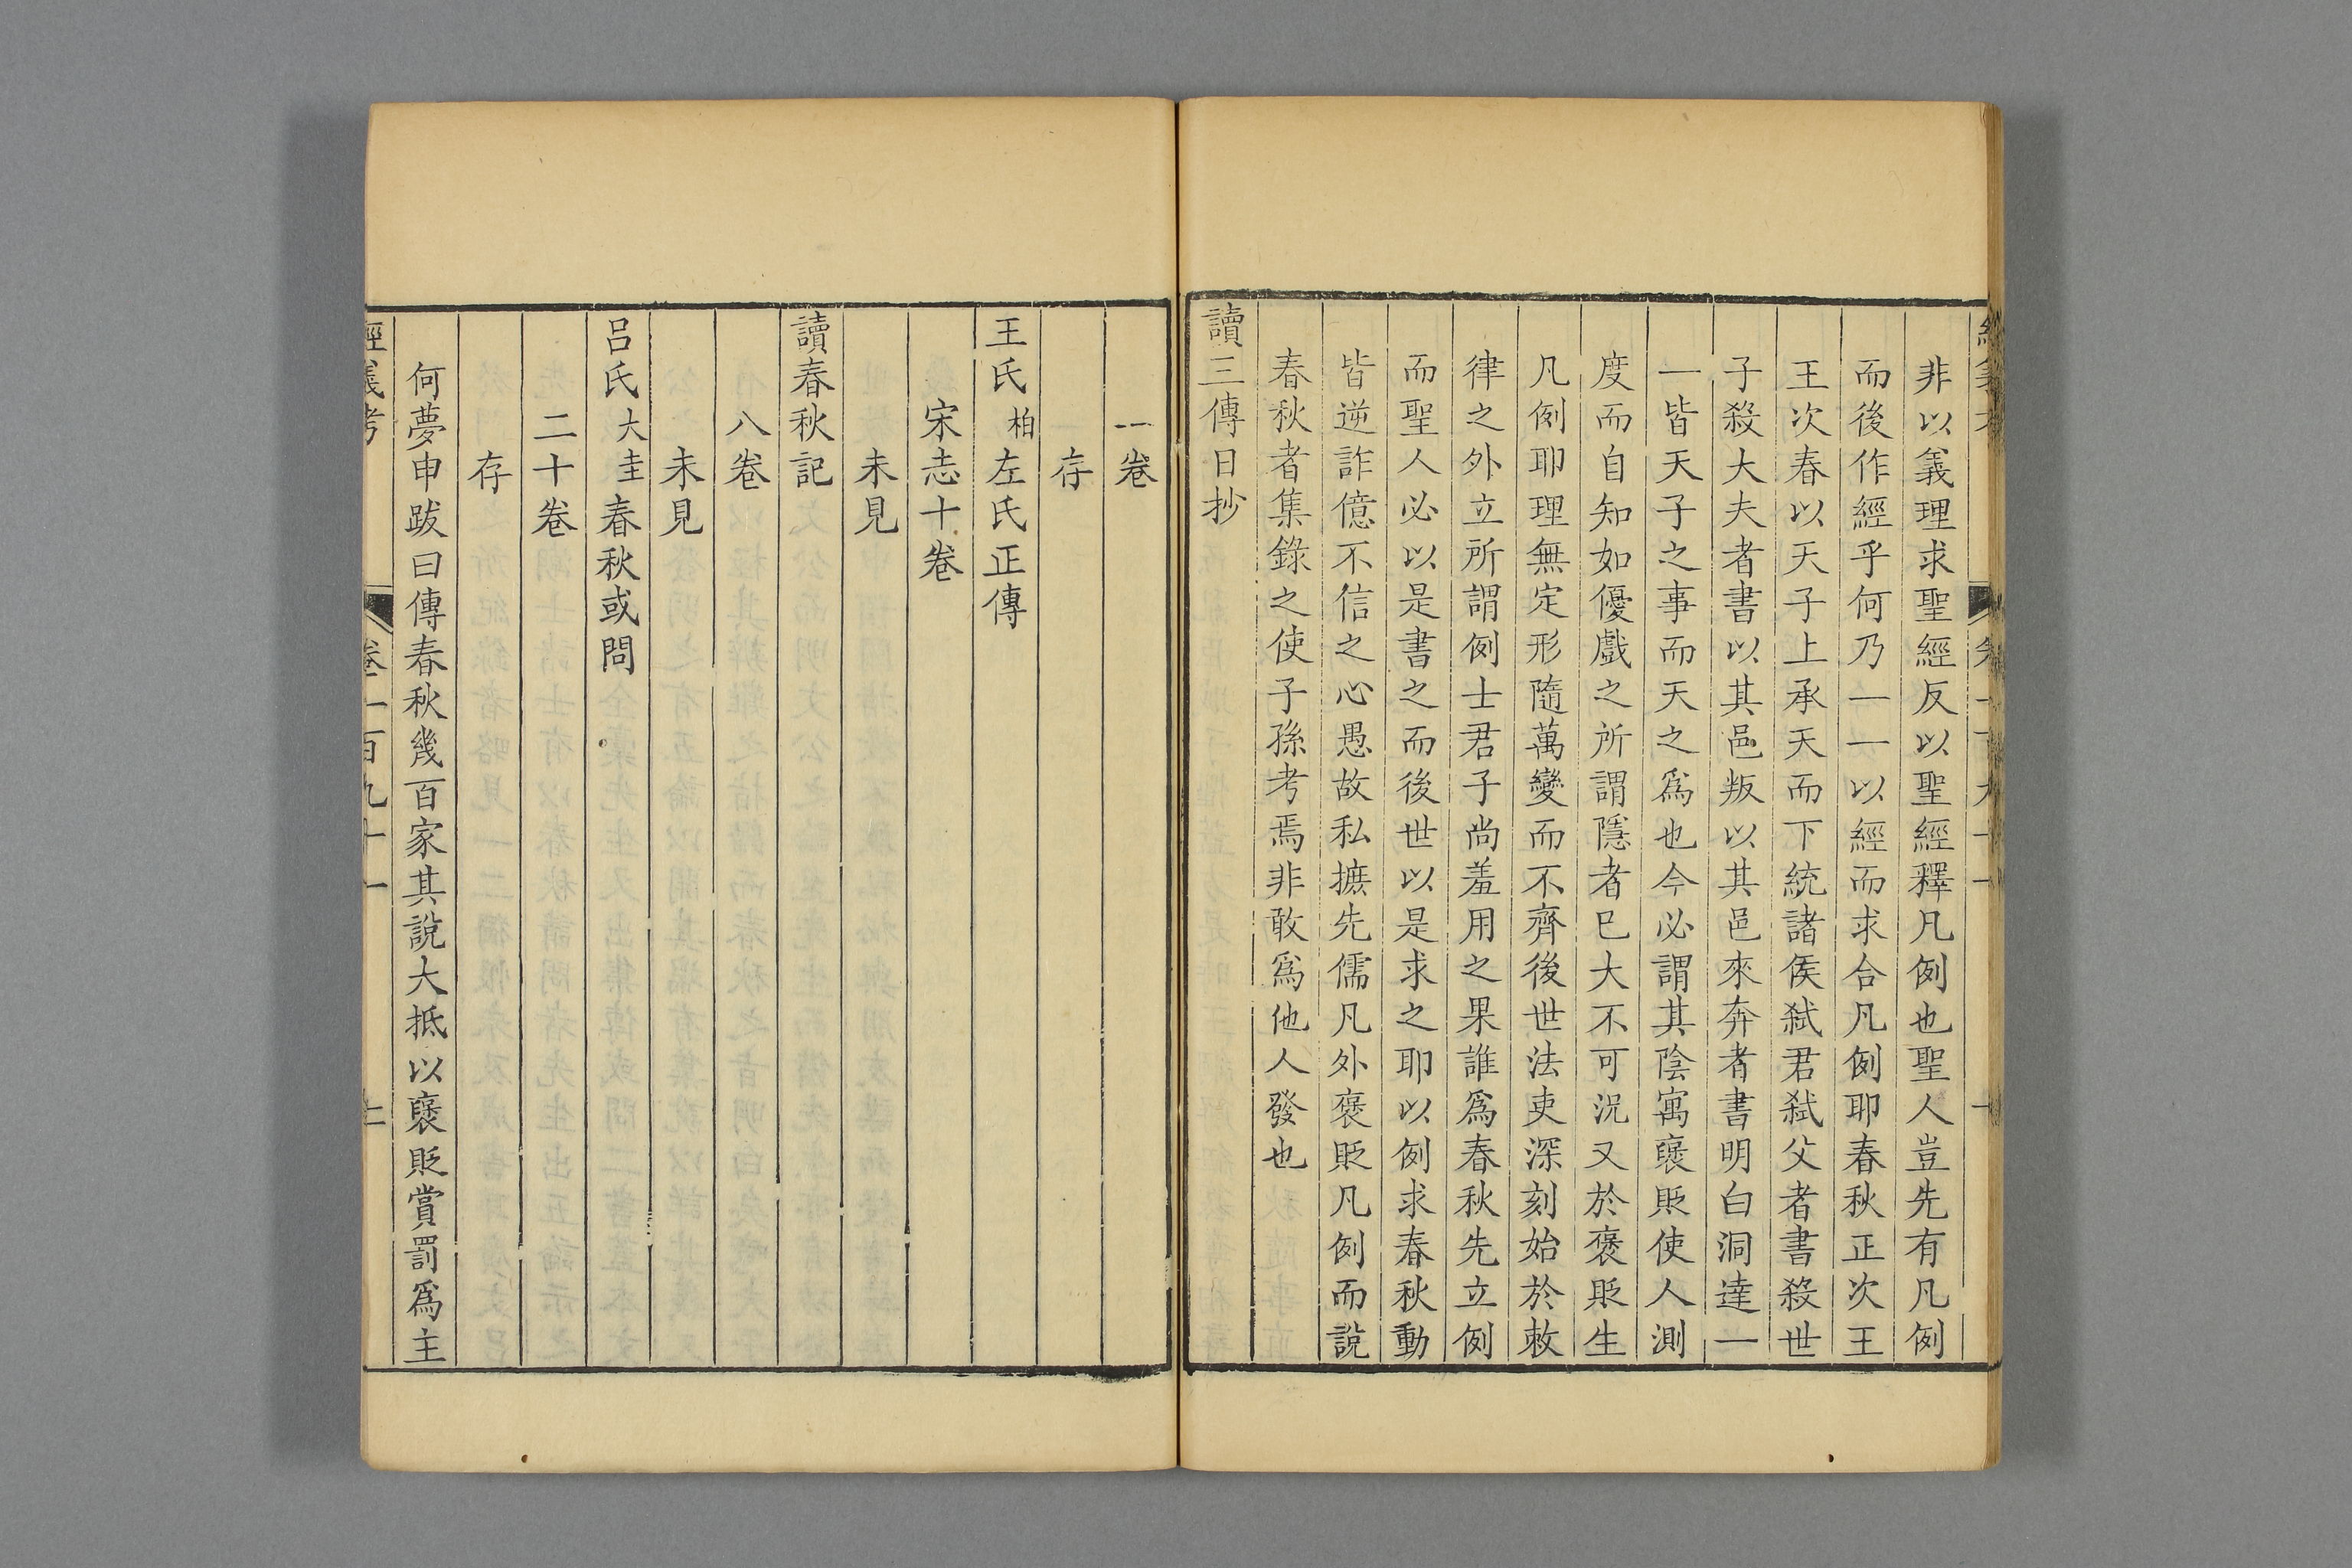 非以義理求聖經反以聖經釋凡例也聖人豈先有凡例
而後作經乎何乃一一以經而求合凡例耶春秋正次王
王次春以天子上承天而下統諸侯弒君弒父者書殺世
子殺大夫者書以其邑叛以其邑來奔者書明白洞達一
一皆天子之事而天之爲也今必謂其陰寓襃貶使人測
度而自知如優戲之所謂隱者巳大不可況又於褒貶生
凡例耶理無定形隨萬變而不齊後世法吏深刻始於敕
律之外立所謂例士君子尚羞用之果誰爲春秋先立例
而聖人必以是書之而後世以是求之耶以例求春秋動
皆逆詐億不信之心愚故私摭先儒凡外褒貶凡例而說
春秋者集錄之使子孫考焉非敢爲他人發也
讀三傳日抄
一卷
存
王氏柏左氏正傳
宋志十卷
未見
讀春秋記
八卷
未見
呂氏大圭春秋或問
二十卷
存
何夢申跋曰傳春秋幾百家其說大抵以襃貶賞罰爲主
經義考 卷一百九十一